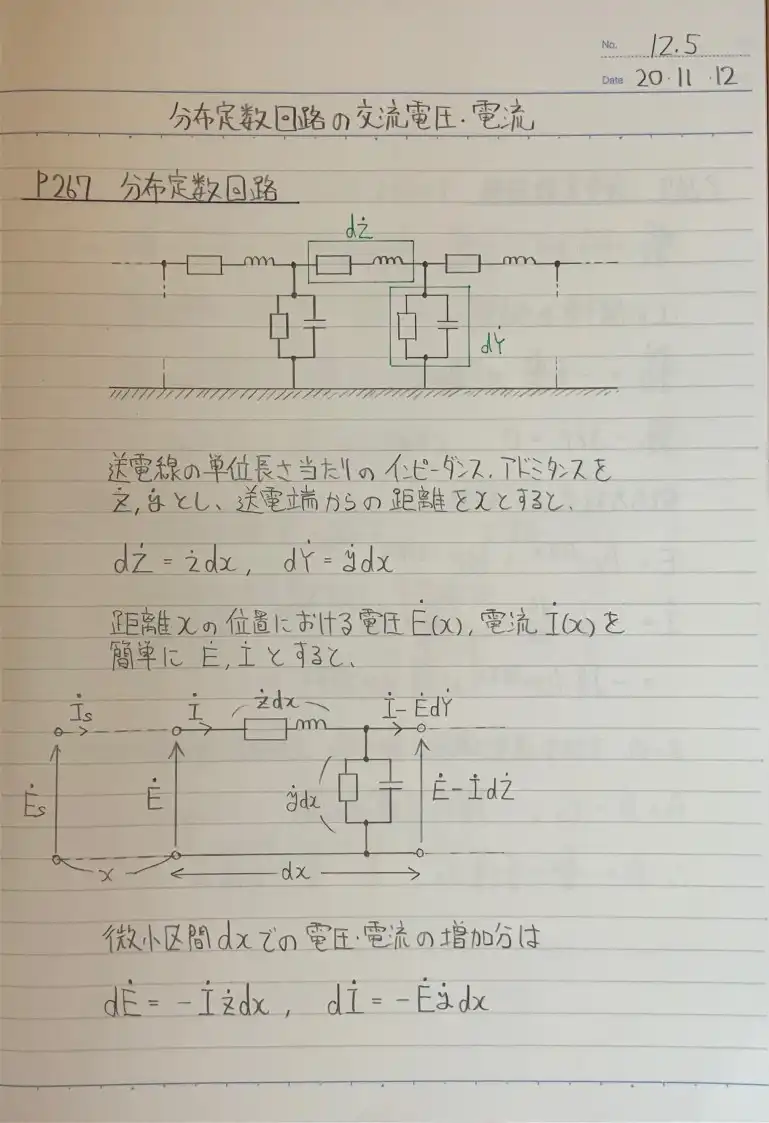 No. 12.5
Date 20・11・12
分布定数回路の交流電圧・電流
P267 分布定数回路
dŻ
dẎ
送電線の単位長さ当たりのインピーダンス、アドミタンスを
ż, ẏとし、送電端からの距離をxとすると、
dŻ = żdx, dẎ = ẏdx
距離xの位置における電圧Ė(x), 電流İ(x)を
簡単に Ė, İ とすると、
İs İ żdx İ-ĖdẎ
Ės Ė ẏdx Ė-İdŻ
x dx
微小区間dxでの電圧・電流の増加分は
dĖ = -İżdx, dİ = -Ėẏdx